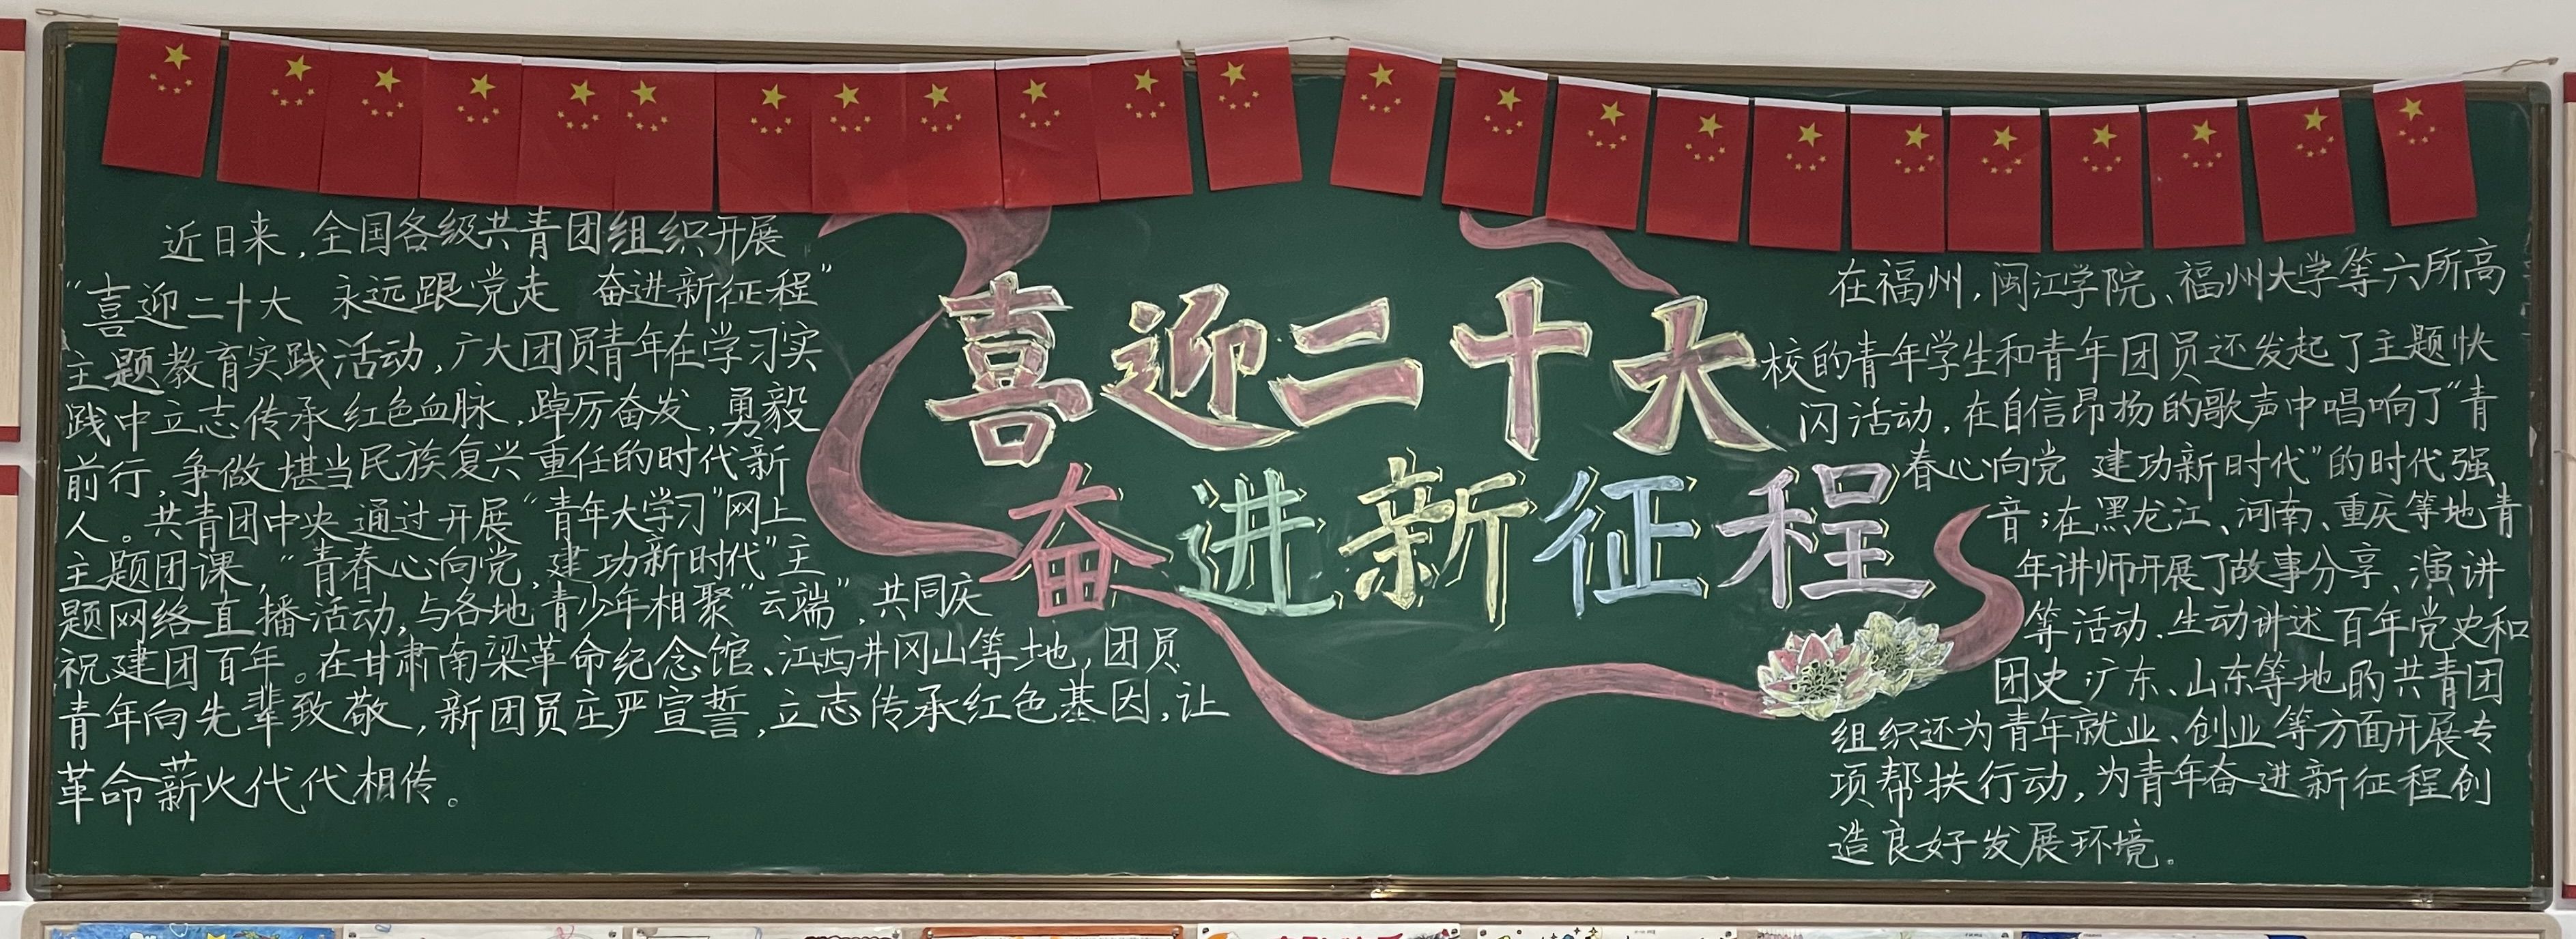 近日来，全国各级共青团组织开展
“喜迎二十大 永远跟党走 奋进新征程”
主题教育实践活动，广大团员青年在学习实
践中立志传承红色血脉，踔厉奋发，勇毅
前行，争做堪当民族复兴重任的时代新
人。共青团中央通过开展“青年大学习”网上
主题团课，“青春心向党，建功新时代”主
题网络直播活动，与各地青少年相聚“云端”，共同庆
祝建团百年。在甘肃南梁革命纪念馆、江西井冈山等地，团员
青年向先辈致敬，新团员庄严宣誓，立志传承红色基因，让
革命薪火代代相传。
喜迎二十大
奋进新征程
在福州，闽江学院、福州大学等六所高
校的青年学生和青年团员还发起了主题快
闪活动，在自信昂扬的歌声中唱响了“青
春心向党 建功新时代”的时代强
音；在黑龙江、河南、重庆等地青
年讲师开展了故事分享、演讲
等活动、生动讲述百年党史和
团史；广东、山东等地的共青团
组织还为青年就业、创业等方面开展专
项帮扶行动，为青年奋进新征程创
造良好发展环境。